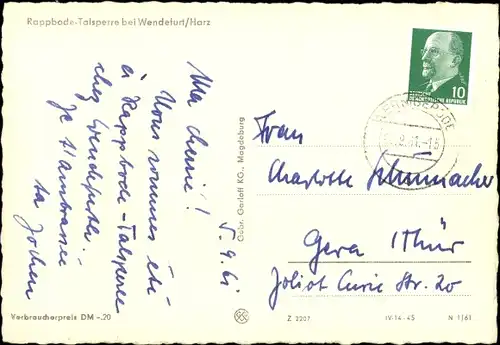 Rappbode-Talsperre bei Wendefurt/Harz
Ma cherie!
Nous sommes ici
Rappbode-Talsperre
chez Wendefurt.
Je t'ambrasse
ta Jochen
5.9.61
Gebr. Garloff KG., Magdeburg
10
DEUTSCHE
DEMOKRATISCHE REPUBLIK
WERNIGERODE
Frau
Charlotte Schumacher
Gera / Thür
Joliot Curie Str. 20
Verbraucherpreis DM -.20
Z 2207
IV-14-45
N 1/61